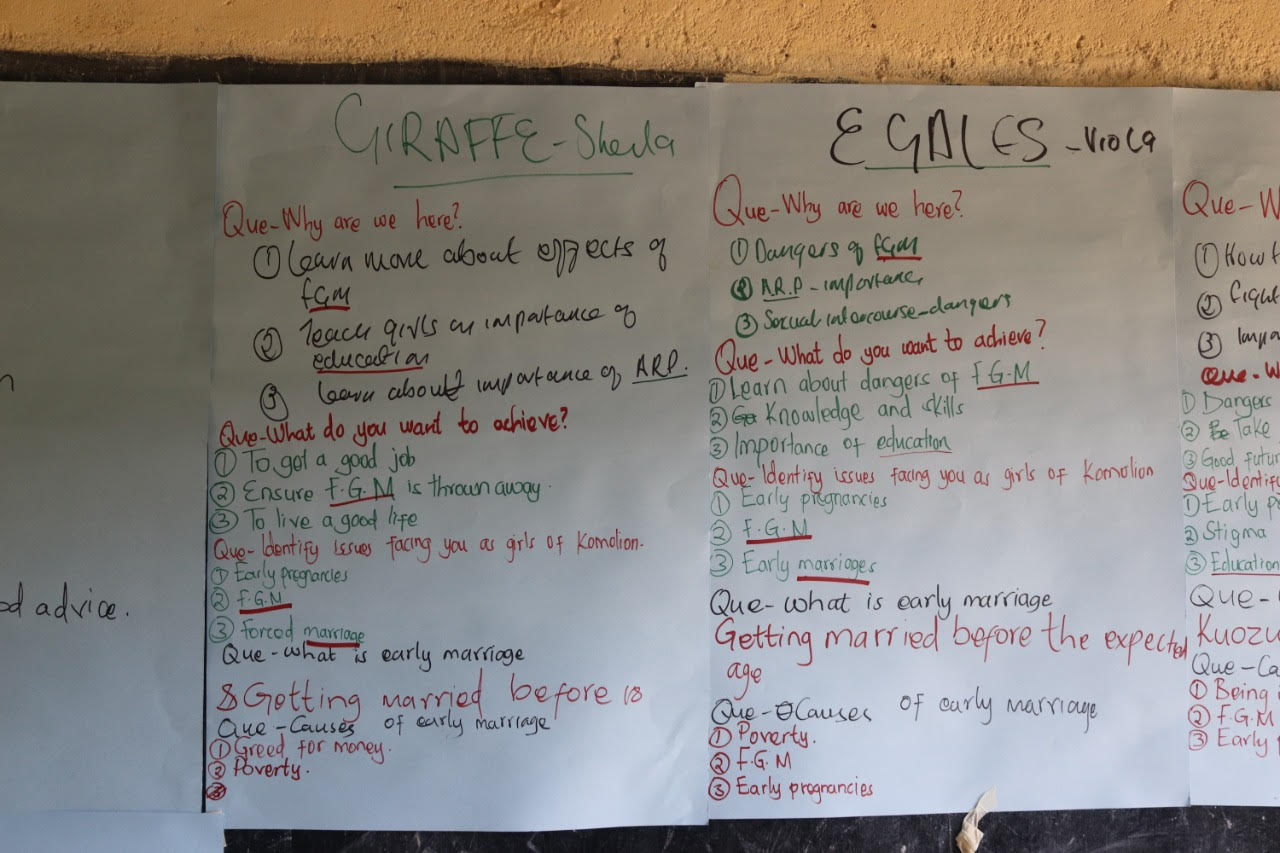 n
od advice.
GIRAFFE-Sheila
Que-Why are we here?
① Learn more about effects of
FGM
② Teach girls on importance of
education
③ Learn about importance of ARP.
Que-What do you want to achieve?
① To get a good job
② Ensure F.G.M is thrown away.
③ To live a good life
Que-Identify issues facing you as girls of Komolion.
① Early pregnancies
② F.G.M
③ Forced marriage
Que-what is early marriage
Getting married before 18
Que-Causes of early marriage
① Greed for money.
② Poverty.
③
EGALES-Viola
Que-Why are we here?
① Dangers of FGM
② A.R.P-importance
③ Sexual intercourse-dangers
Que-What do you want to achieve?
① Learn about dangers of F.G.M
② Knowledge and skills
③ Importance of education
Que-Identify issues facing you as girls of Komolion
① Early pregnancies
② F.G.M
③ Early marriages
Que-what is early marriage
Getting married before the expected
age
Que-Causes of early marriage
① Poverty.
② F.G.M
③ Early pregnancies
Que-W
① How t
② Fight
③ Impo
Que-W
① Dangers
② Take
③ Good futur
Que-Identify
① Early p
② Stigma
③ Education
Que-
Kuozu
Que-Ca
① Being
② F.G.M
③ Early